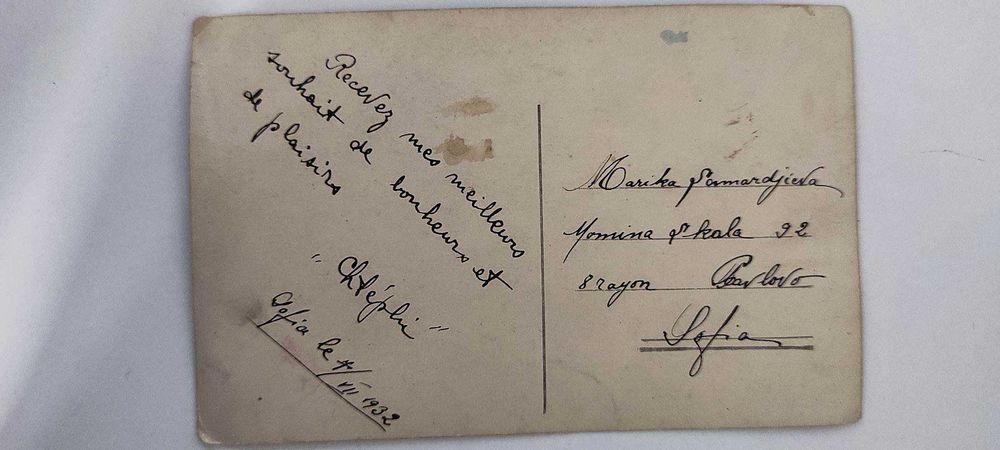 Recevez mes meilleurs
souhait de bonheurs et
de plaisirs
"Chtéphi"
Sofia le 4/VII 1932
Marika Samardjieva
Momina Skala 92
8 rayon Pavlovo
Sofia